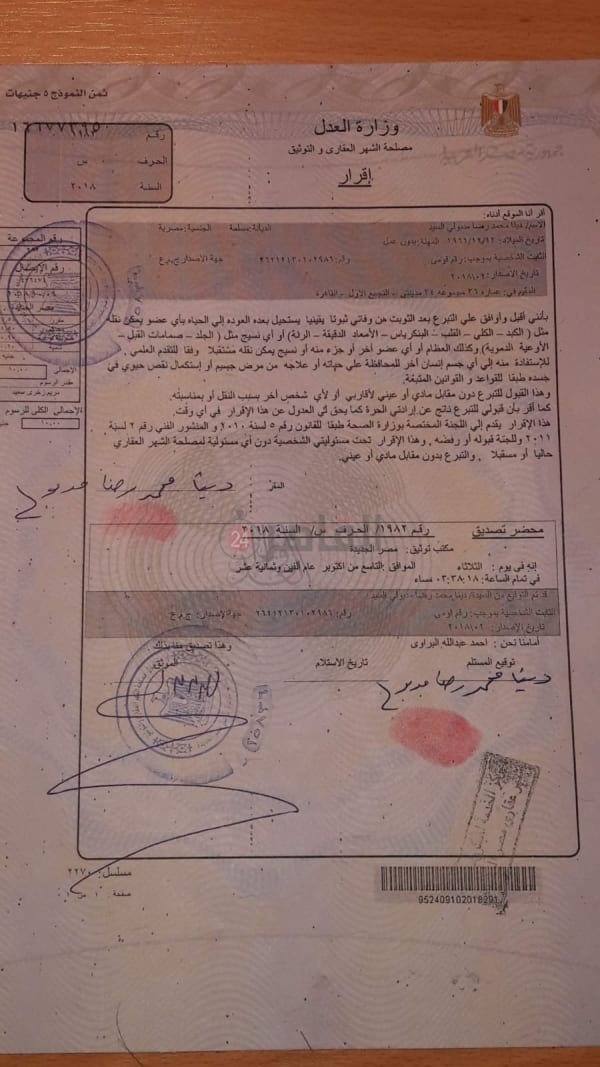 ثمن النموذج ٥ جنيهات
جمهورية مصر العربية
وزارة العدل
مصلحة الشهر العقارى و التوثيق
إقرار
رقم
الحرف س
السنة ٢٠١٨
رقم المجموعة
رقم الإيصال
مصر الجديدة
مقدر الرسوم
مريم زخرى سعيد
الإجمالى الكلى للرسوم
أقر أنا الموقع أدناه:
الاسم/ دينا محمد رضا مدبولي السيد الديانة: مسلمة الجنسية: مصرية
تاريخ الميلاد: ١٩٦٦/١٢/١٣ المهنة: بدون عمل
الثابت الشخصية بموجب: رقم قومى رقم: ٢٦٦١٢١٣٠١٠٢٩٨٦ جهة الاصدار: ج.م.ع
تاريخ الاصدار: ٢٠١٨/٠٢
المقيم في: عمارة ٣٦ مجموعه ٣٤ مدينتى - التجمع الاول - القاهرة
بأنني أقبل وأوافق علي التبرع بعد التوبت من وفاتي ثبوتا يقينيا يستحيل بعده العوده إلي الحياه بأي عضو يمكن نقله
مثل ( الكبد - الكلي - القلب - البنكرياس - الأمعاء الدقيقة - الرئة) أو أي نسيج مثل ( الجلد - صمامات القبل -
الأوعية الدموية) وكذلك العظام أو أي عضو أخر أو جزء منه أو نسيج يمكن نقله مستقبلا وفقا للتقدم العلمي .
للإستفادة منه إلي أي جسم إنسان أخر للمحافظة علي حياته أو علاجه من مرض جسيم أو إستكمال نقص حيوي في
جسده طبقا للقواعد و القوانين المتبعة.
وهذا القبول للتبرع دون مقابل مادي أو عيني لأقاربي أو لأي شخص أخر بسبب النقل أو بمناسبته.
كما أقر بأن قبولي للتبرع ناتج عن إرادتي الحرة كما يحق لي العدول عن هذا الإقرار في أي وقت.
هذا الإقرار يقدم إلي اللجنة المختصة بوزارة الصحة طبقا للقانون رقم ٥ لسنة ٢٠١٠ و المنشور الفني رقم ٢ لسنة
٢٠١١ وللجنة قبوله أو رفضه , وهذا الإقرار تحت مسئوليتي الشخصية دون أي مسئولية لمصلحة الشهر العقاري
حاليا أو مسقبلا , والتبرع بدون مقابل مادي أو عيني.
المقر
دينا محمد رضا مدبولي
القاهرة 24
محضر تصديق رقم ١٩٨٢/ الحرف س/ السنة ٢٠١٨
مكتب توثيق: مصر الجديدة
إنه فى يوم : الثلاثاء الموافق: التاسع من اكتوبر عام الفين وثمانية عشر
في تمام الساعة: ٠٣:٣٨:١٨ مساء
قد تم التوقيع من السيدة/ دينا محمد رضا مدبولي السيد
الثابت الشخصية بموجب: رقم قومى رقم: ٢٦٦١٢١٣٠١٠٢٩٨٦ جهة الإصدار: ج.م.ع
تاريخ الإصدار: ٢٠١٨/٠٢
أمامنا نحن : احمد عبدالله البراوى وهذا تصديق منا بذلك
توقيع المستلم تاريخ الاستلام الموثق
دينا محمد رضا مدبولي
مسلسل: ٢٢٧٠
صفحة ١ من ١
952409102018291